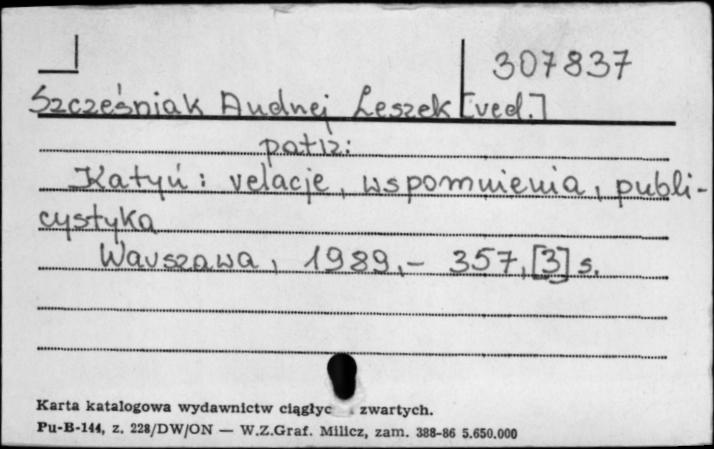 307837
Szcześniak Andrzej Leszek [red.]
patrz:
Katyń : relacje, wspomnienia, publi-
cystyka
Warszawa, 1989,- 357,[3] s.
Karta katalogowa wydawnictw ciągłyc zwartych.
Pu-B-144, z. 228/DW/ON — W.Z.Graf. Milicz, zam. 388-86 5.650.000